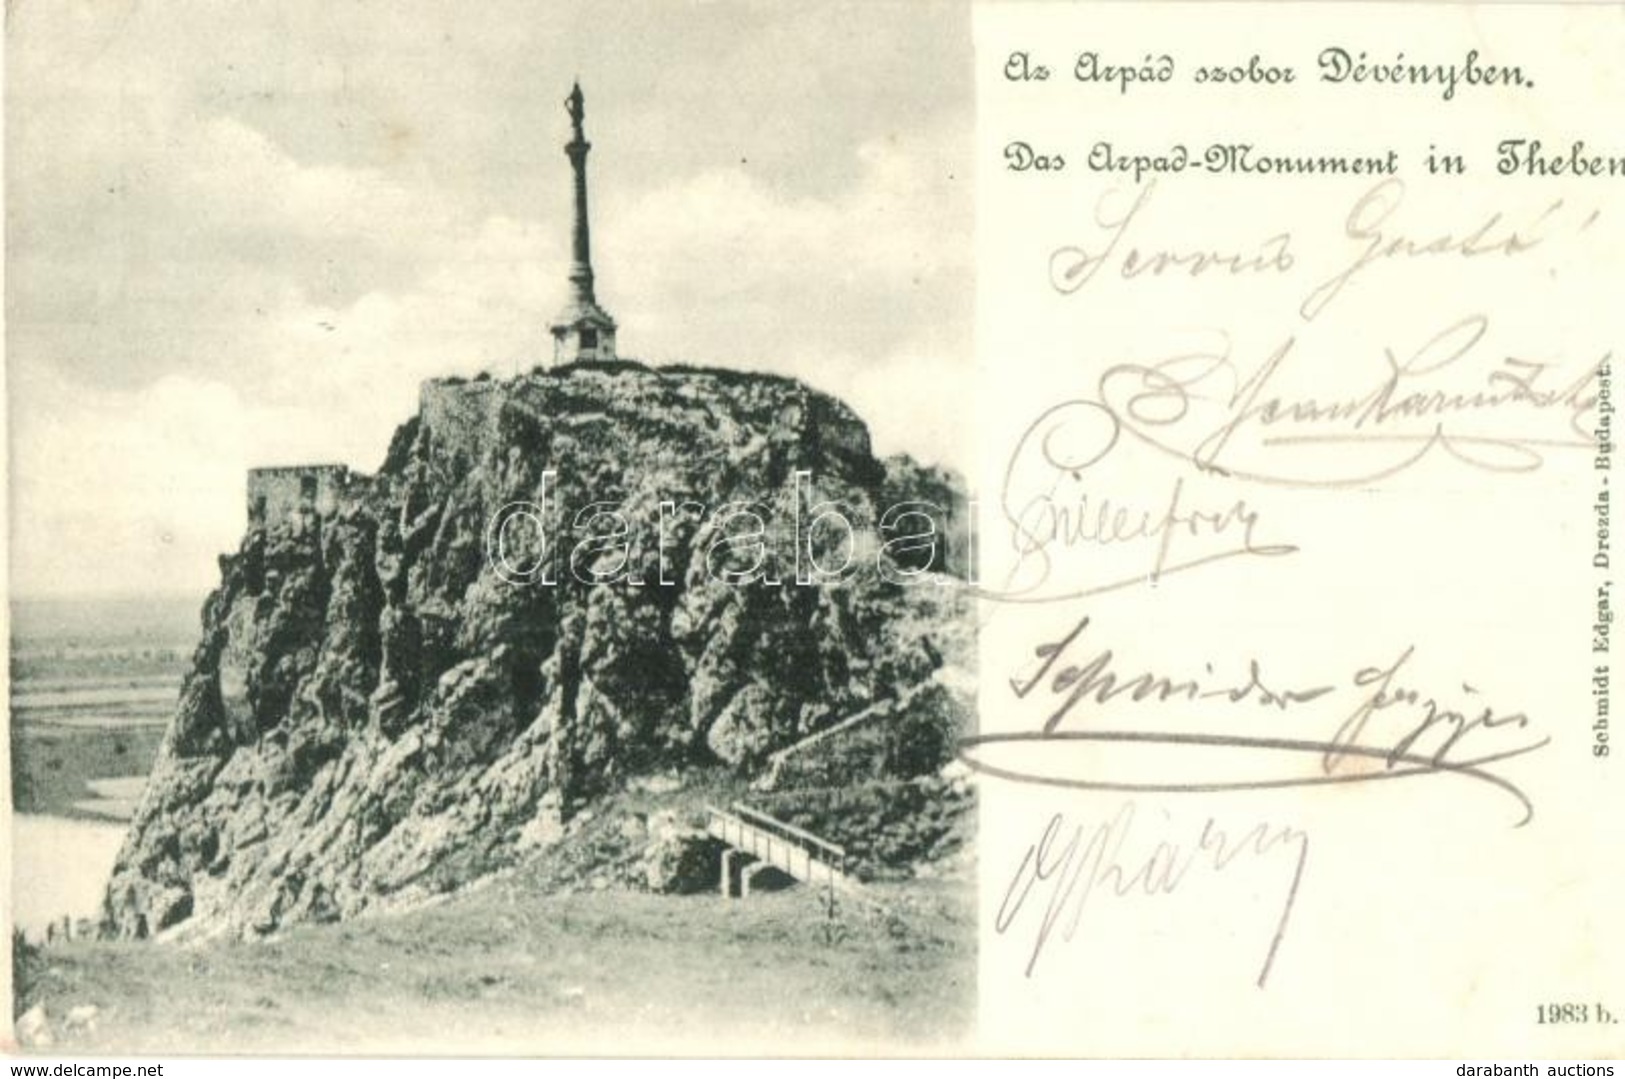 Az Arpád szobor Dévényben.
Das Arpad-Monument in Theben
Servus Gustó!
Schneider György
Schmidt Edgar, Drezda - Budapest.
daraban
1983 b.
www.delcampe.net
darabanth auctions